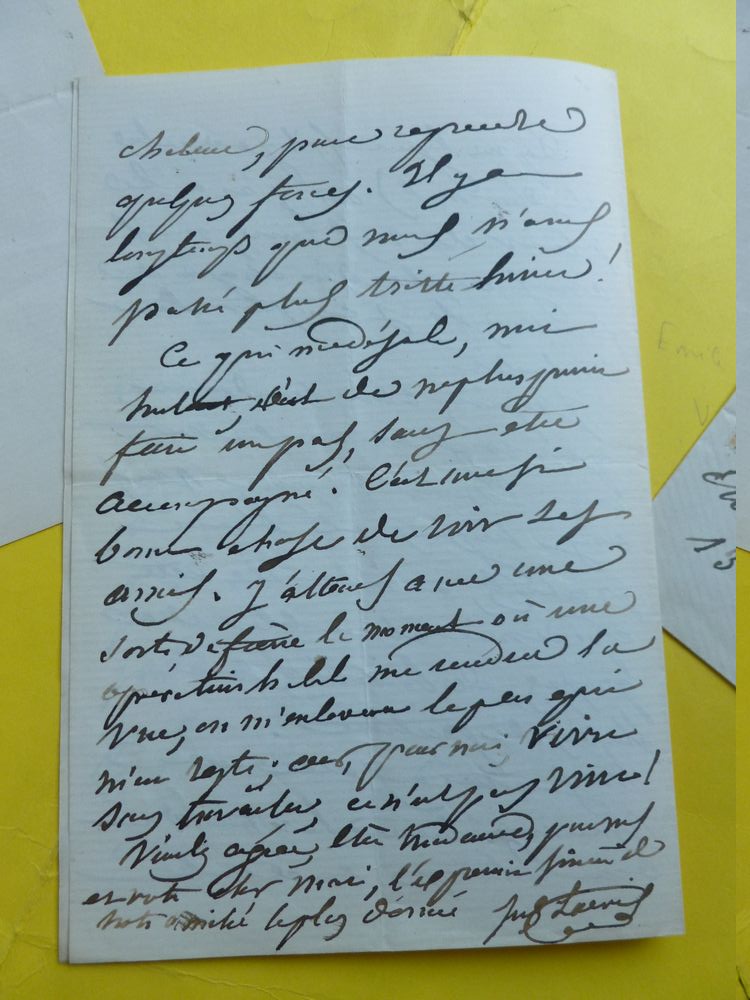 chaleur, pour reprendre
quelques forces. Il y a
longtemps que nous n'avons
passé plus triste hiver!
Ce qui me désole, moi
surtout, c'est de ne plus pouvoir
faire un pas, sans être
accompagné. C'est une si
bonne chose de voir ses
amis. J'attends avec une
sorte de fièvre le moment où une
opération habile me rendra la
vue, ou m'enlèvera le peu qui
m'en reste; car, pour moi, vivre
sans travailler, ce n'est pas vivre!
Veuillez agréer, chère madame, pour vous
et votre cher mari, l'expression sincère de
notre amitié la plus dévouée